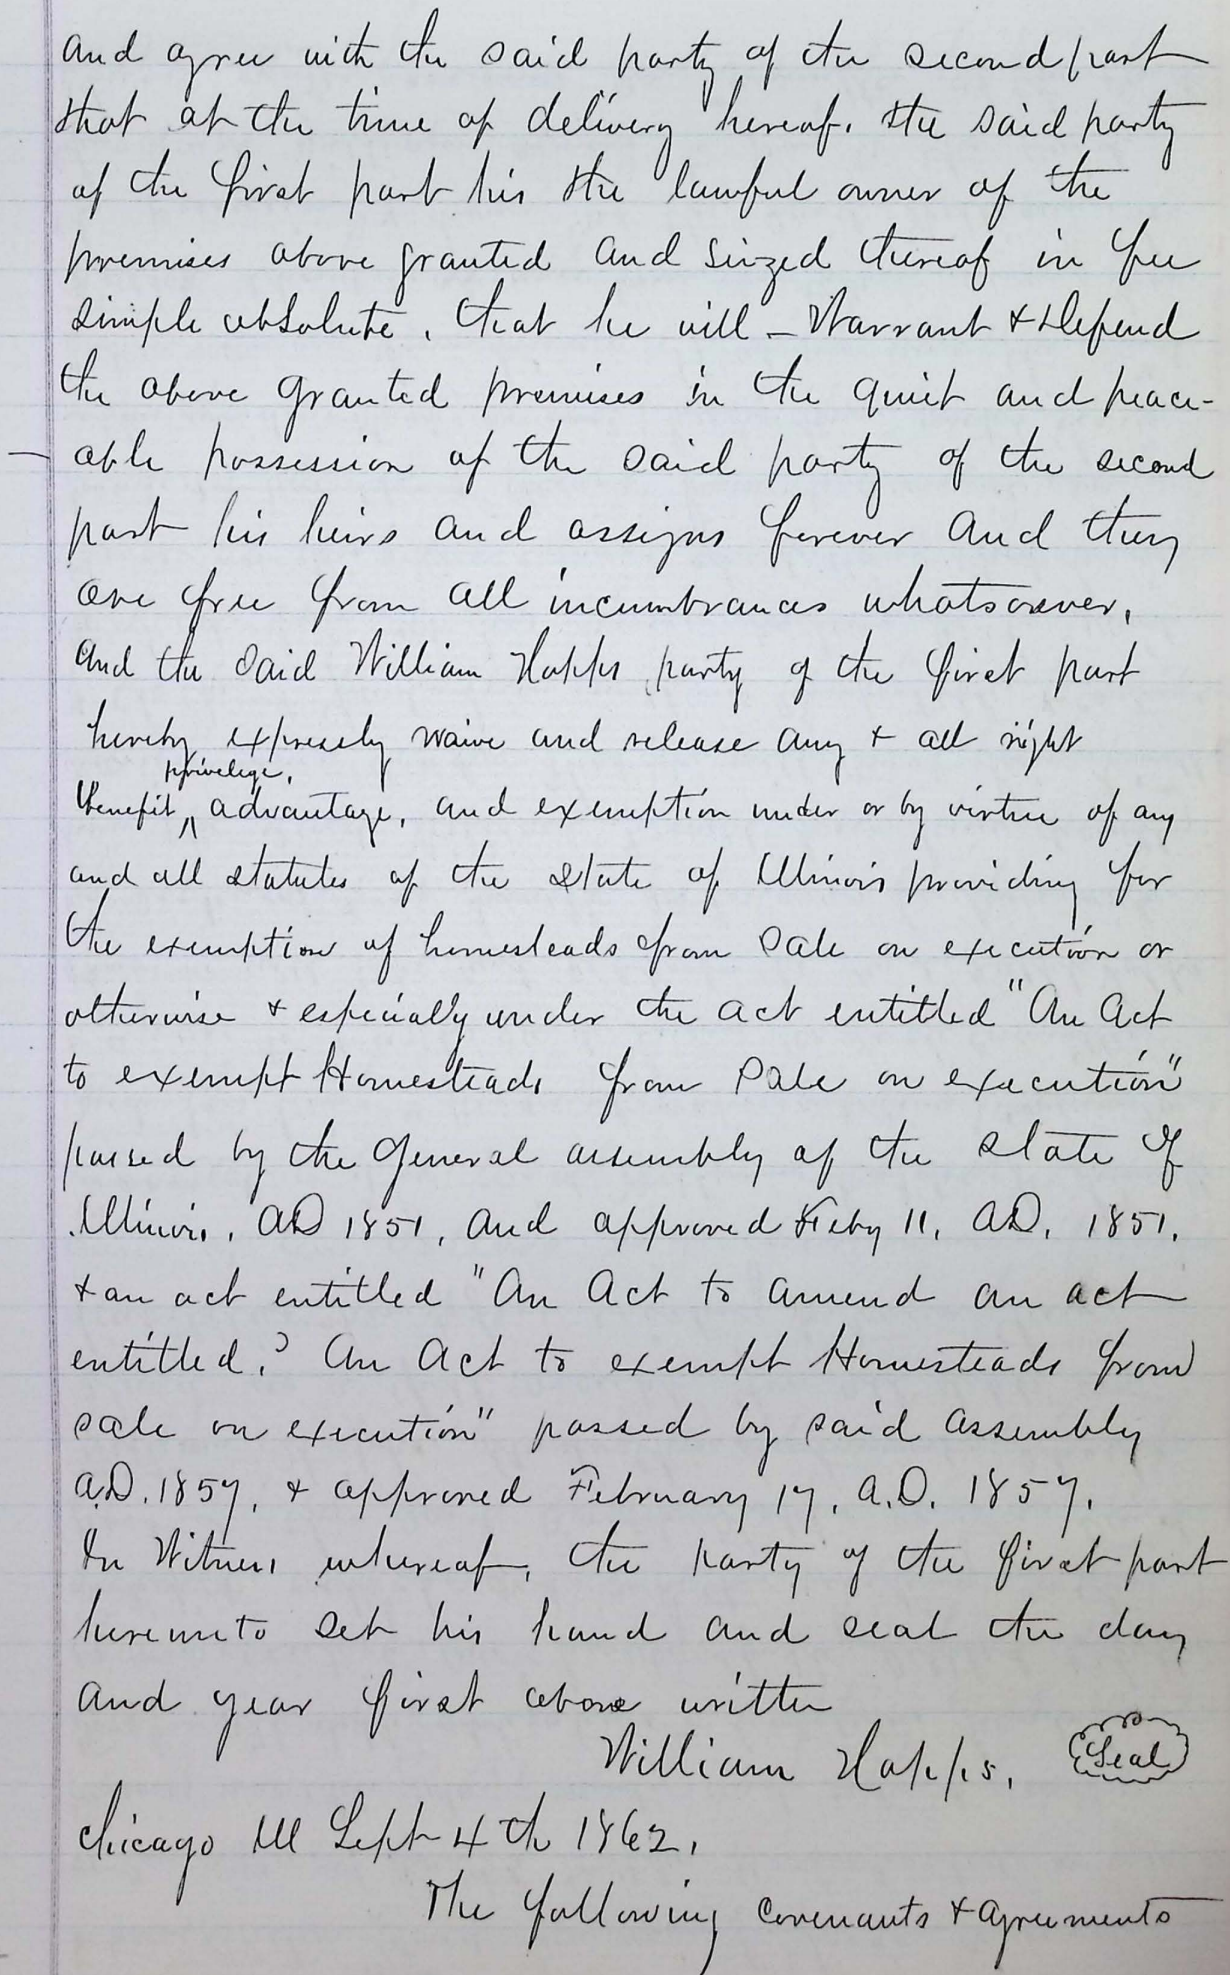 and agree with the said party of the second part
that at the time of delivery hereof. the said party
of the first part his the lawful owner of the
premises above granted and seized thereof in fee
simple absolute, that he will - Warrant & Defend
the above granted premises in the quiet and peace-
able possession of the said party of the second
part his heirs and assigns forever and they
are free from all incumbrances whatsoever,
and the said William Hopps party of the first part
hereby expressly waive and release any & all right
privelege,
benefit, advantage, and exemption under or by virtue of any
and all statutes of the state of Illinois providing for
the exemption of homesteads from sale on execution or
otherwise & especially under the act entitled "An Act
to exempt Homesteads from Sale on execution"
passed by the General assembly of the state of
Illinois, AD 1851, and approved Feby 11, AD, 1851,
& an act entitled "An Act to amend an act
entitled,' An Act to exempt Homesteads from
sale on execution" passed by said Assembly
A.D. 1857, & approved February 17, A.D. 1857,
In Witness whereof, the party of the first part
hereunto set his hand and seal the day
and year first above written
William Hopps, Seal
Chicago Ill Sept 4th 1862,
The following covenants & agreements